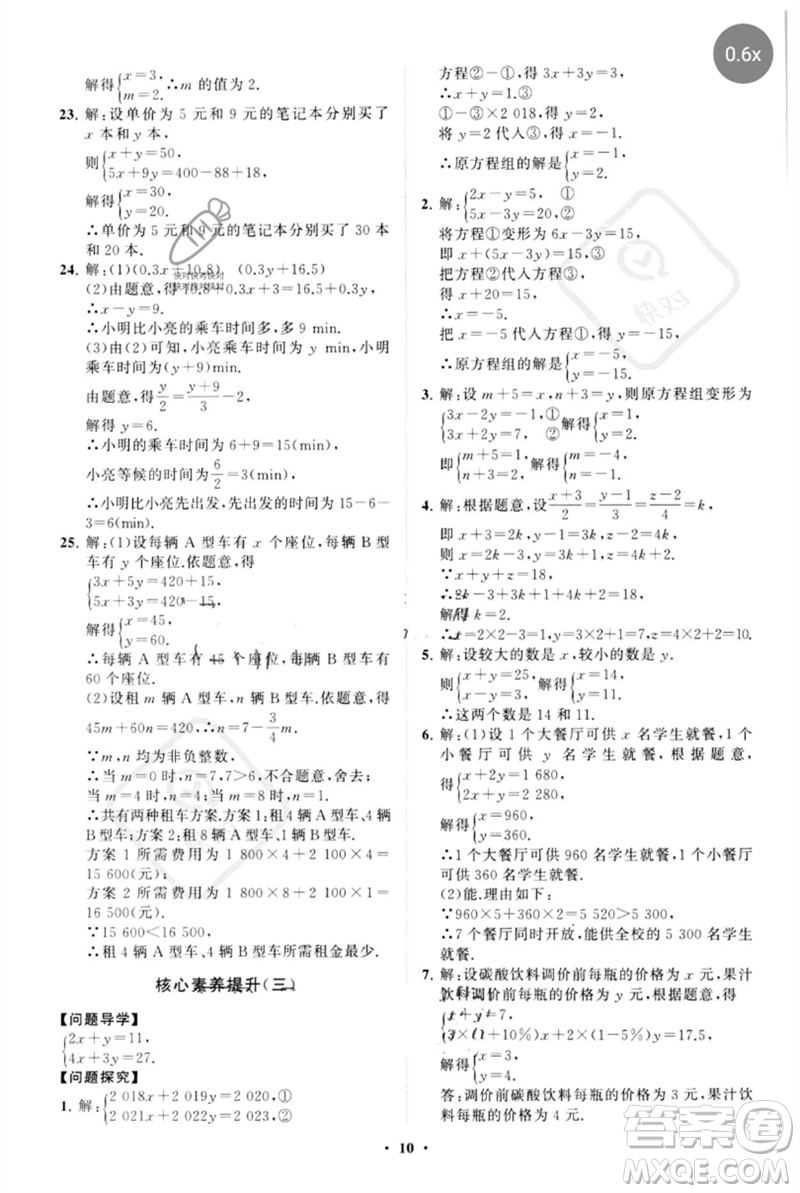 解得{x=3,
m=2.
∴m 的值为 2.
23. 解:设单价为 5 元和 9 元的笔记本分别买了
x 本和 y 本,
则{x+y=50,
5x+9y=400-88+18,
解得{x=30,
y=20.
∴单价为 5 元和 9 元的笔记本分别买了 30 本
和 20 本.
24. 解:(1)(0.3x+10.8) (0.3x+16.5)
(2)由题意,得 10.8+0.3x=16.5+0.3y
∴x-y=9.
∴小明比小亮的乘车时间多,多 9 min.
(3)由(2)可知,小亮的乘车时间为 y min,小明
的乘车时间为(y+9)min.
由题意,得 y/2=(y+9)/3-2,
解得 y=6.
∴小明的乘车时间为 6+9=15(min),
小亮等候的时间为 6/2=3(min).
∴小明比小亮先出发,先出发时间为 15-6-
3=6(min).
25. 解:(1)设每辆 A 型车有 x 个座位,每辆 B 型
车有 y 个座位.依题意,得
{3x+5y=420+15,
5x+3y=420-15,
解得{x=45,
y=60.
∴每辆 A 型车有 45 个座位,每辆 B 型车有
60 个座位.
(2)设租 m 辆 A 型车,n 辆 B 型车.依题意,得
45m+60n=420,∴n=7-3/4 m.
∵m,n 均为非负整数,
∴当 m=0 时,n=7,7>6,不合题意,舍去;
当 m=4 时,n=4;当 m=8 时,n=1.
∴共有两种租车方案.方案 1:租 4 辆 A 型车、4 辆
B 型车;方案 2:租 8 辆 A 型车、1 辆 B 型车.
方案 1 所需费用为 1 800×4+2 100×4=
15 600(元),
方案 2 所需费用为 1 800×8+2 100×1=
16 500(元).
∵15 600<16 500,
∴租 4 辆 A 型车、4 辆 B 型车所需租金最少.
核心素养提升(三)
【问题导学】
{2x+y=11,
4x+3y=27.
【问题探究】
1. 解:{2 018x+2 019y=2 020,①
2 021x+2 022y=2 023,②
方程②-①,得 3x+3y=3,
∴x+y=1.③
①-③×2 018,得 y=2,
将 y=2 代入③,得 x=-1,
∴原方程组的解是{x=-1,
y=2.
2. 解:{2x-y=-5, ①
5x-3y=-10,②
将方程①变形为 6x-3y=-15,
即 x+(5x-3y)=-15,③
把方程②代入方程③,
得 x+20=-15.
∴x=-5.
把 x=-5 代入方程①,得 y=-5,
∴原方程组的解是{x=-5,
y=-5.
3. 解:设 m+5=x,n+3=y,则原方程组变形为
{3x-2y=-1,①
3x+2y=7, ②
解得{x=1,
y=2,
即{m+5=1,
n+3=2,
解得{m=-4,
n=-1.
4. 解:根据题意,设 (x+3)/2=(y-1)/3=(z-2)/4=k,
即 x+3=2k,y-1=3k,z-2=4k,
则 x=2k-3,y=3k+1,z=4k+2,
∵x+y+z=18,
∴2k-3+3k+1+4k+2=18,
解得 k=2.
∴x=2×2-3=1,y=3×2+1=7,z=4×2+2=10.
5. 解:设较大的数是 x,较小的数是 y.
则{x+y=25,
x-y=3,
解得{x=14,
y=11.
∴这两个数是 14 和 11.
6. 解:(1)设 1 个大餐厅可供 x 名学生就餐,1 个
小餐厅可供 y 名学生就餐,根据题意,得
{x+2y=1 680,
2x+y=2 280,
解得{x=960,
y=360.
∴1 个大餐厅可供 960 名学生就餐,1 个小餐厅可
供 360 名学生就餐.
(2)能.理由如下:
∵960×5+360×2=5 520>5 300,
∴7 个餐厅同时开放,能供全校的 5 300 名学生
就餐.
7. 解:设碳酸饮料调价前每瓶的价格为 x 元,果汁
饮料调价前每瓶的价格为 y 元,根据题意,得
{x+y=7,
3×(1+10%)x+2×(1-5%)y=17.5,
解得{x=3,
y=4.
答:调价前碳酸饮料每瓶的价格为 3 元,果汁饮
料每瓶的价格为 4 元.
10
0.6x
快对
快对快对快对
快对快对快对
答案卷
MXQE.COM